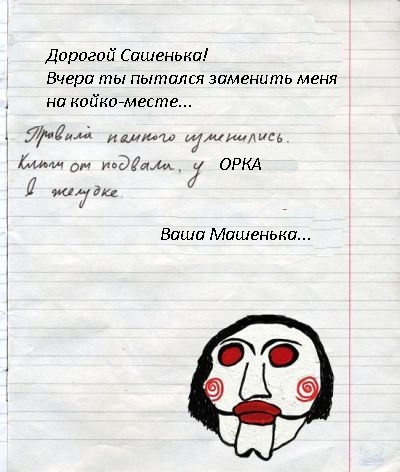 Дорогой Сашенька!
Вчера ты пытался заменить меня
на койко-месте...
Правила немного изменились.
Ключи от подвала, у ОРКА
в желудке.
Ваша Машенька...